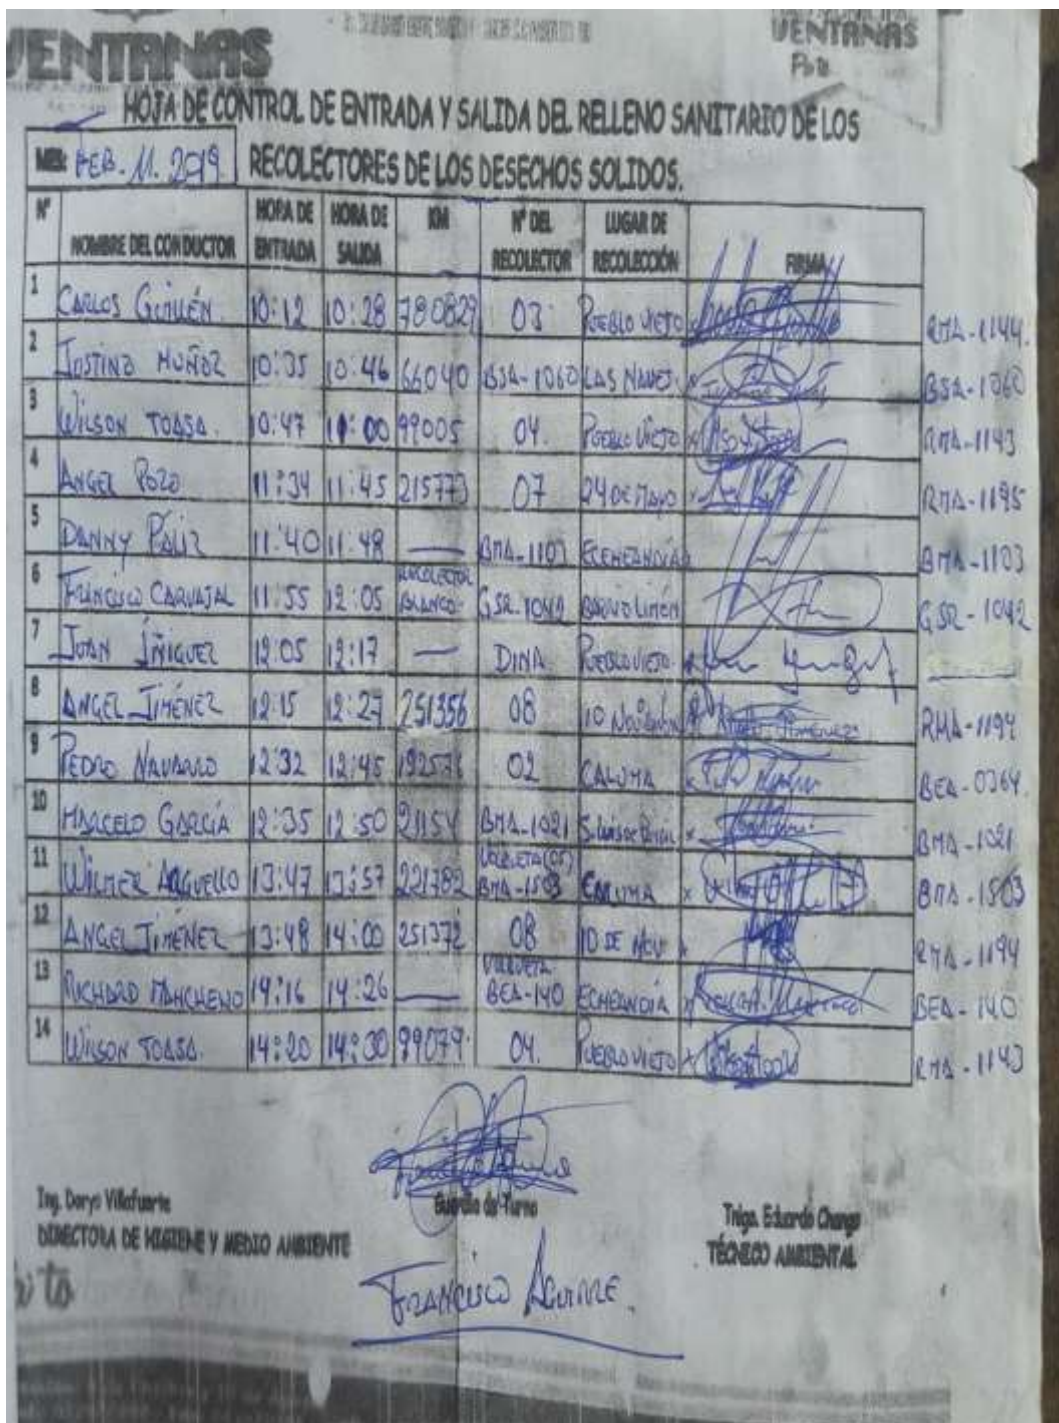 VENTANAS
VENTANAS
HOJA DE CONTROL DE ENTRADA Y SALIDA DEL RELLENO SANITARIO DE LOS
MES: FEB. 11. 2019 RECOLECTORES DE LOS DESECHOS SOLIDOS.
Nº NOMBRE DEL CONDUCTOR HORA DE ENTRADA HORA DE SALIDA KM Nº DEL RECOLECTOR LUGAR DE RECOLECCIÓN FIRMA
1 CARLOS GUILLÉN 10:12 10:28 780829 03 PUEBLO VIEJO RMA-1144.
2 JUSTINO MUÑOZ 10:35 10:46 66040 BSA-1060 LAS NAVES. BSA-1060
3 WILSON TOASA. 10:47 11:00 99005 04. PUEBLO VIEJO RMA-1143
4 ANGEL POZO 11:34 11:45 215773 07 24 DE MAYO RMA-1195
5 DANNY PÁLIZ 11:40 11:48 — BMA-1103 ECHEANDIA BMA-1103
6 FRANCISCO CARVAJAL 11:55 12:05 RECOLECTOR BLANCO. GSR-1042 GSR-1042
7 JUAN IÑIGUEZ 12:05 12:17 — DINA PUEBLO VIEJO
8 ANGEL JIMÉNEZ 12:15 12:27 251356 08 RMA-1194
9 PEDRO NAVARRO 12:32 12:45 02 CALUMA BEA-0364.
10 MARCELO GARCÍA 12:35 12:50 21154 BMA-1021 BMA-1021
11 WILMER ARGUELLO 13:47 13:57 221782 VOLQUETA (05) BMA-1503 CALUMA BMA-1503
12 ANGEL JIMÉNEZ 13:48 14:00 251372 08 10 DE NOV RMA-1194
13 RICHARD MANCHENO 14:16 14:26 — VOLQUETA BEA-140 ECHEANDIA BEA-140
14 WILSON TOASA. 14:20 14:30 99079. 04. PUEBLO VIEJO RMA-1143
Ing. Dorys Villafuerte
DIRECTORA DE HIGIENE Y MEDIO AMBIENTE
Guardia de Turno
Tnlgo. Eduardo Chango
TÉCNICO AMBIENTAL
FRANCISCO AGUIRRE.